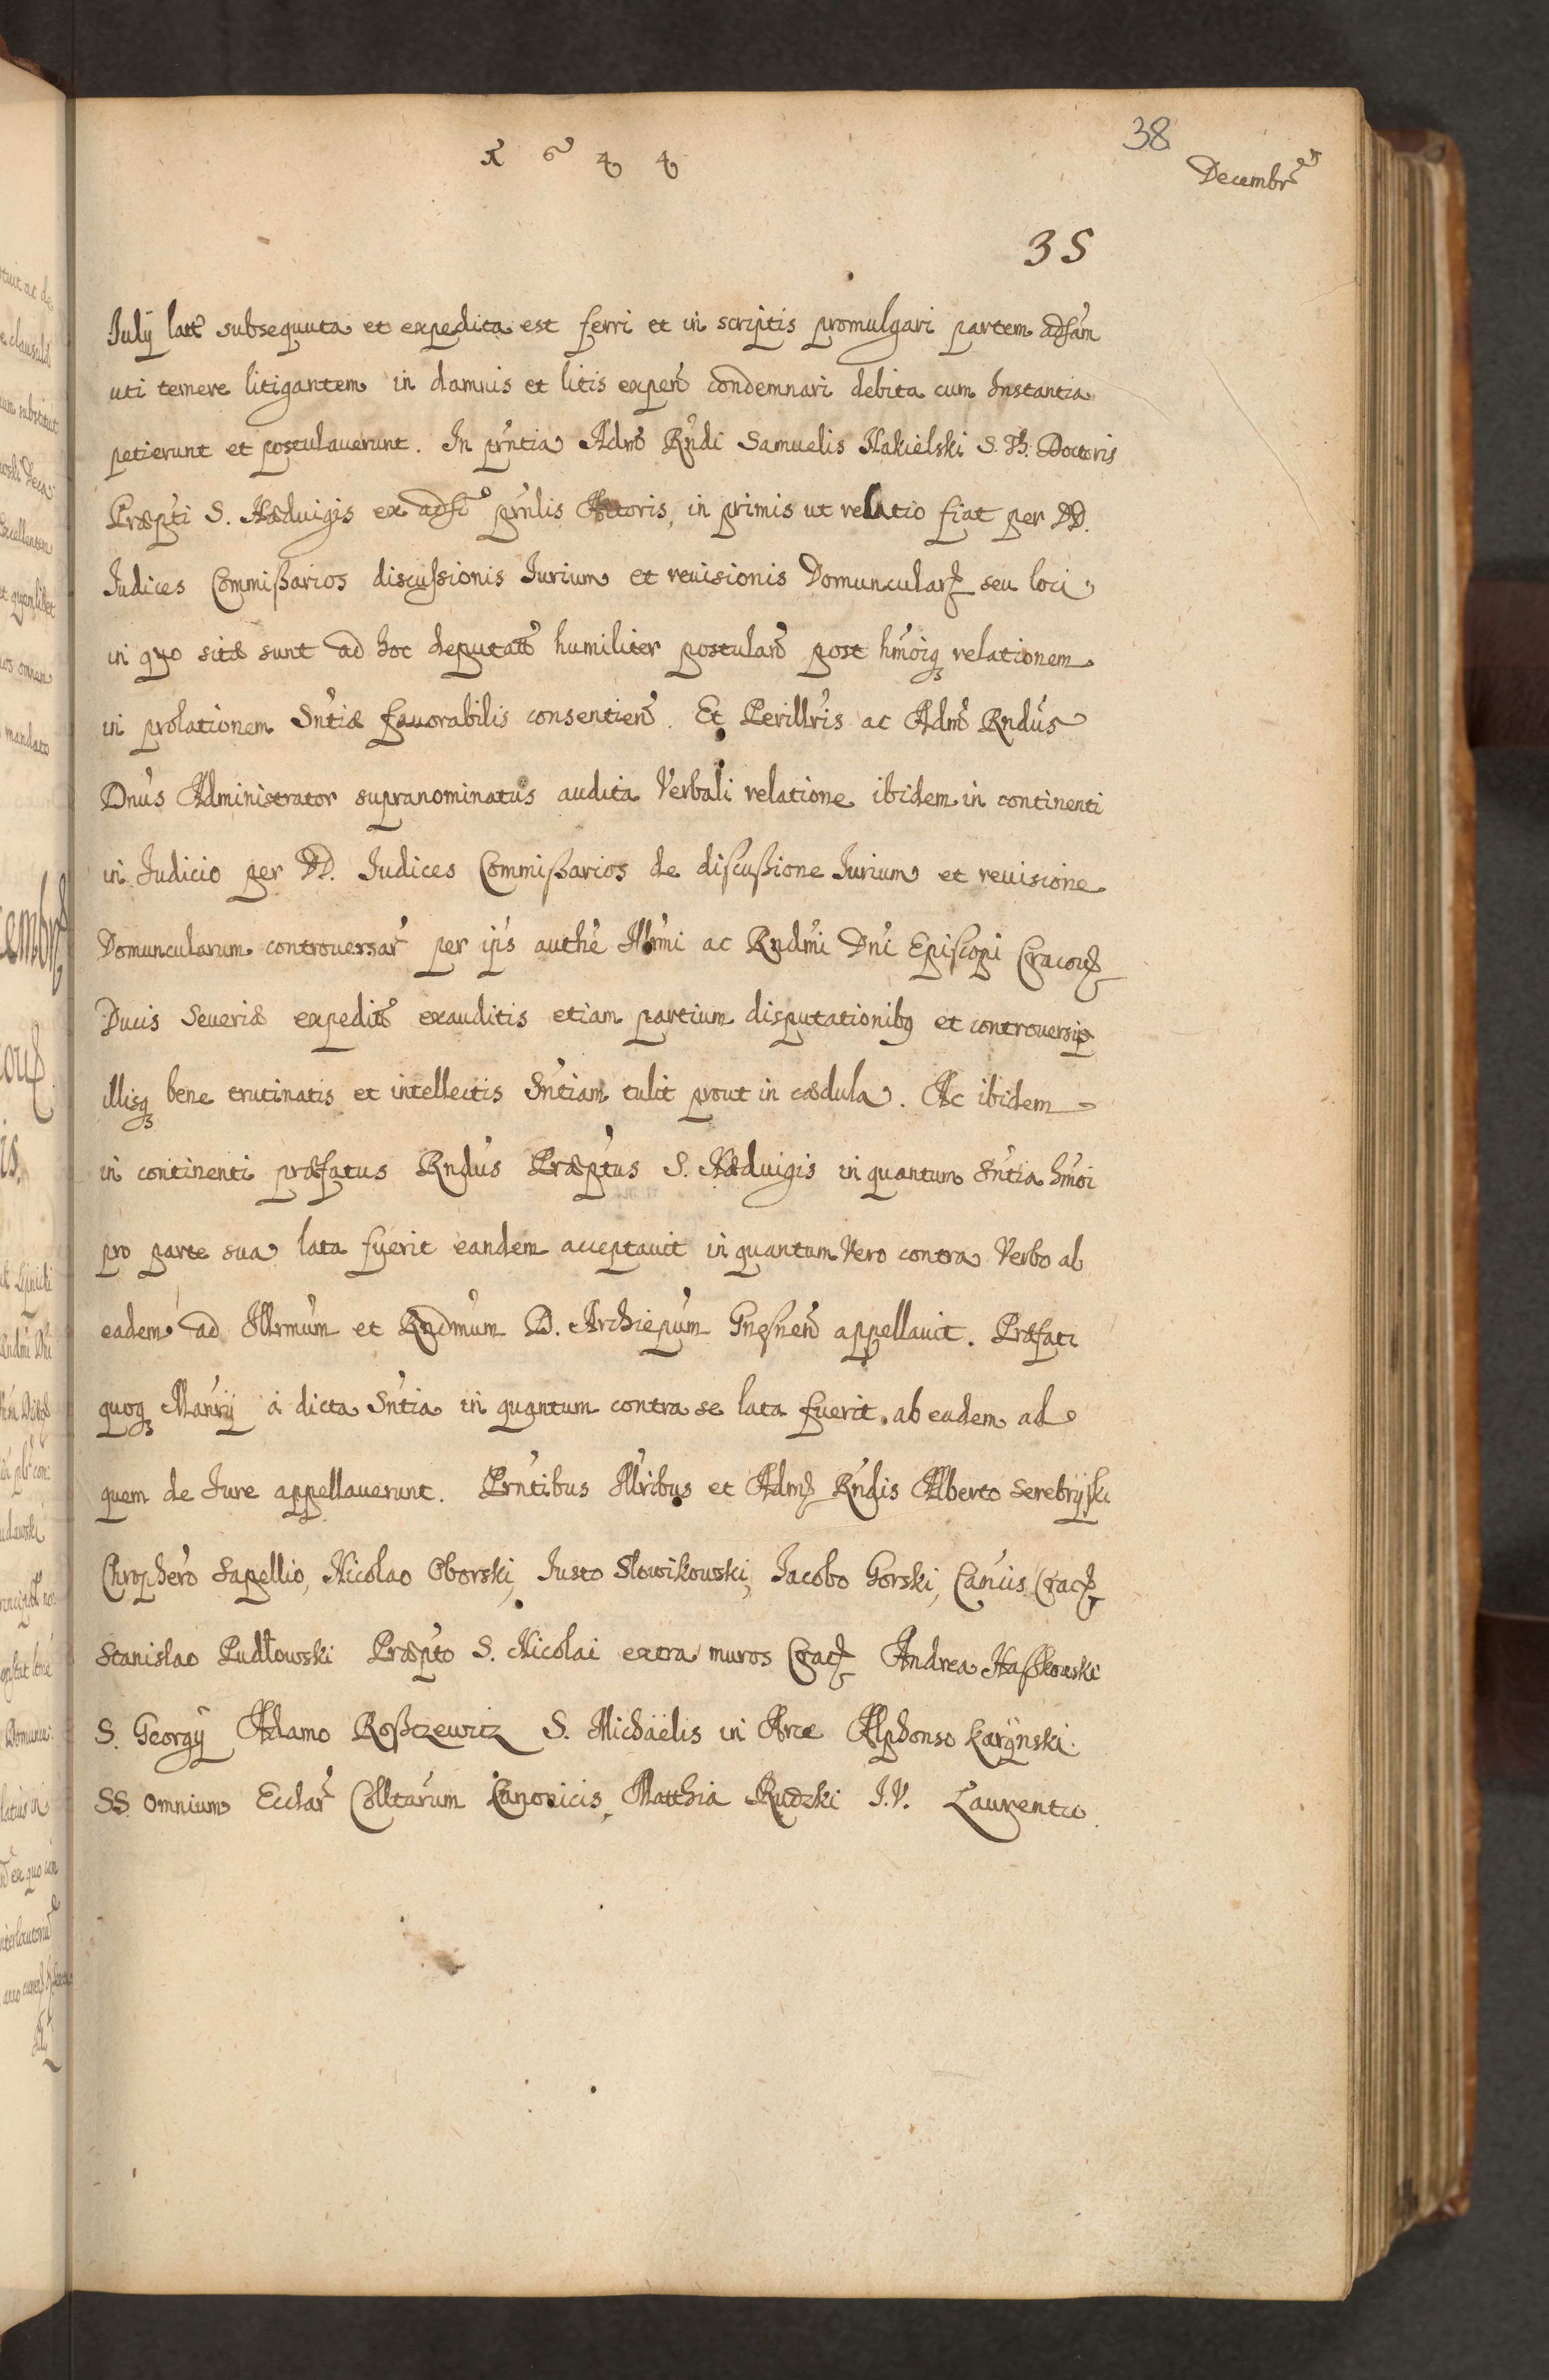 1644
38
Decembr
35
Julÿ latt subsequuta et expedita est ferri et in scriptis promulgari partem adsãm
uti temere litigantem in damnis et litis expeñ condemnari debita cum Instantia
petierunt et postulauerunt. In prñtia Adm Rñdi Samuelis Nakielski S. Th. Doctoris
Præpti S. Hæduigis ex adso prñlis Actoris, in primis ut relatio fiat per DD.
Judices Commißarios discussionis Jurium et reuisionis Domuncular seu loci
in quo sitæ sunt ad hoc deputatt humiliter postulañ post hmõiq relationem
in prolationem Sñtiæ fauorabilis consentieñ. Et Perillris ac Adm Rndus
Dnus Administrator supranominatus audita Verbali relatione ibidem in continenti
in Judicio per DD. Judices Commißarios de discußione Jurium et reuisione
Domuncularum controuersar per ips authe Illrmi ac Rndmi Dni Episcopi Cracou
Ducis Seueriæ expeditt exauditis etiam partium disputationibq et controuersijs
illisq bene trutinatis et intellectis Sñtiam tulit prout in cædula. Ac ibidem
in continenti præfatus Rndus Præptus S. Hæduigis in quantum Sñtia hmõi
pro parte sua lata fuerit eandem acceptauit in quantum Vero contra Verbo ab
eadem ad Illrmum et Rndmum D. Archiepum Gnesneñ appellauit. Præfati
quoq Manrij á dicta Sñtia in quantum contra se lata fuerit ab eadem ad
quem de Jure appellauerunt. Prñtibus Illribus et Adm Rñdis Alberto Serebrijski
Chrophero Sapellio, Nicolao Oborski, Justo Słowikowski, Jacobo Gorski, Canĩis Crac
Stanislao Pudłowski Præpto S. Nicolai extra muros Crac Andrea
S. Georgÿ Adamo Roßczewicz S. Michaëlis in Arce Alphonso Karÿnski
SS. Omnium Ecclar Colltarum Canonicis, Matthia Rudzki J.V. Laurentio